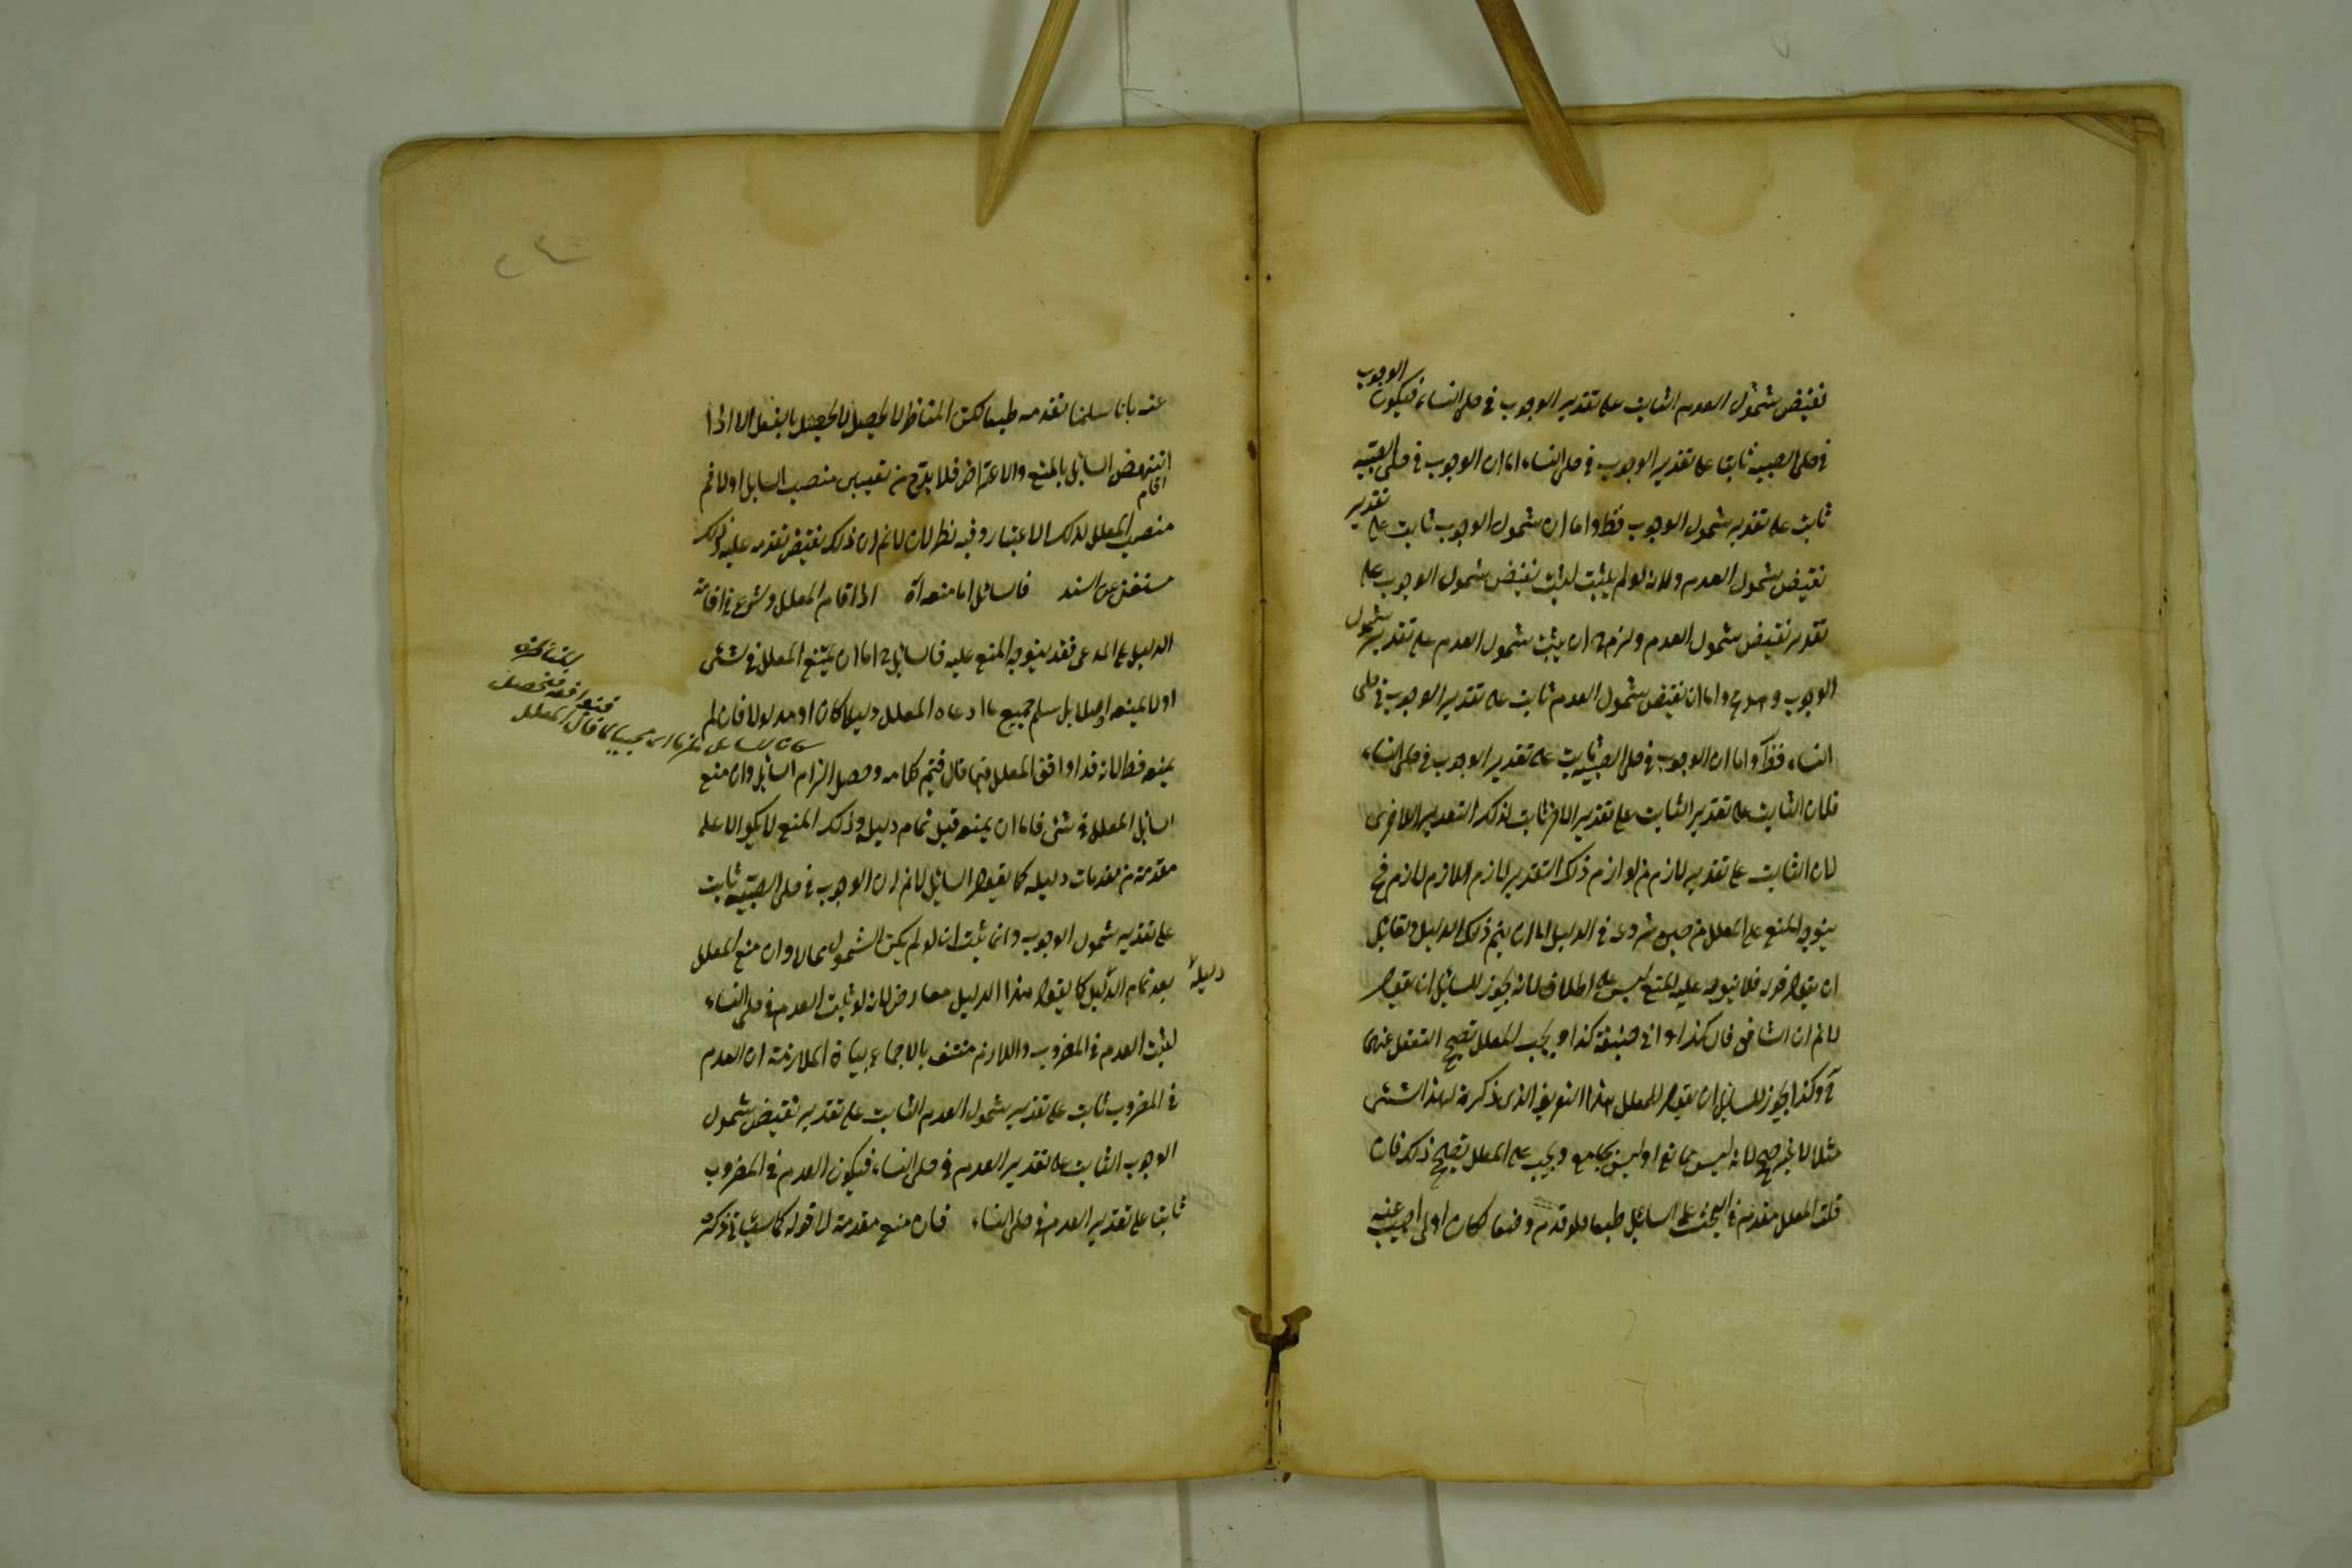 نقيض شمول العدم الثابت على تقدير الوجوب فى حلى النساء فيكون الوجوب
فى حلى الصبية ثابتا على تقدير الوجوب فى حلى النساء اما ان الوجوب فى حلى الصبية
ثابت على تقدير شمول الوجوب فظ واما ان شمول الوجوب ثابت على تقدير
نقيض شمول العدم فلانه لو لم يثبت لثبت نقيض شمول الوجوب على
تقدير نقيض شمول العدم ولزم منه ان يثبت شمول العدم على تقدير شمول
الوجوب و واما ان نقيض شمول العدم ثابت على تقدير الوجوب فى حلى
النساء فظ واما ان الوجوب فى حلى الصبية ثابت على تقدير الوجوب فى حلى النساء
فلان الثابت على تقدير الثابت على تقدير الاخر ثابت لذلك التقدير الاخر
لان الثابت على تقدير لازم من لوازم ذلك التقدير لازم اللازم لازم فح
يتوجه المنع على المعلل من حين شروعه فى الدليل الى ان يتم ذلك الدليل ولقائل
ان يقول قوله فلا يتوجه عليه المنع ليس على اطلاقه لانه يجوز للسائل ان يقول
لانم ان الشافعى قال كذا او ابى حنيفة كذا ويجب للمعلل تصحيح النقل عنهما
وكذا يجوز للسائل ان يقول للمعلل هذا التعريف الذى ذكرته لهذا الشئ
مثلا غير صحيح لانه ليس بمانع او ليس بجامع ويجب على المعلل تصحيح ذلك فان
قلت المعلل مقدم فى البحث على السائل طبعا فلو قدم وضعا لكان اولى اجيب عنه
عنه بانا سلمنا تقدمه طبعا لكن المناظر لا يحصل بالفعل الا اذا
انتهض السائل بالمنع والاعتراض فلا بد من تعيين منصب السائل اولا ثم
منصب المعلل لذلك الاعتبار وفيه نظر لان لانم ان ذلك يقتضى تقدمه عليه
مستغن عن السند فالسائل اما منعه اه اذا اقام المعلل وشرع فى اقامة
الدليل على المدعى فقد يتوجه المنع عليه فالسائل ح اما ان يمنع المعلل فى شئ
اولا يمنعه اصلا بل سلم جميع ما ادعاه المعلل دليلا كان او مدلولا فان لم
يمنعه فظ لانه قد اوافق المعلل فيما قال فيتم كلامه وحصل الزام السائل وان منع
السائل المعلل فى شئ فاما ان يمنعه قبل تمام دليله وذلك المنع لا يكون الا على
مقدمة من مقدمات دليله كما يقول السائل لانم ان الوجوب فى حلى الصبية ثابت
على تقدير شمول الوجوب وانما يثبت ان لو لم يكن الشمول محالا وان منع المعلل
بعد تمام الدليل كما يقول هذا الدليل معارض لانه لو ثبت العدم فى حلى النساء
لثبت العدم فى المضروب واللازم منتف بالاجماع بيان الملازمة ان العدم
فى المضروب ثابت على تقدير شمول العدم الثابت على تقدير نقيض شمول
الوجوب الثابت على تقدير العدم فى حلى النساء فيكون العدم فى المضروب
ثابتا على تقدير العدم فى حلى النساء فان منع مقدمة لا قوله كما سيأتى ذكره
دليله